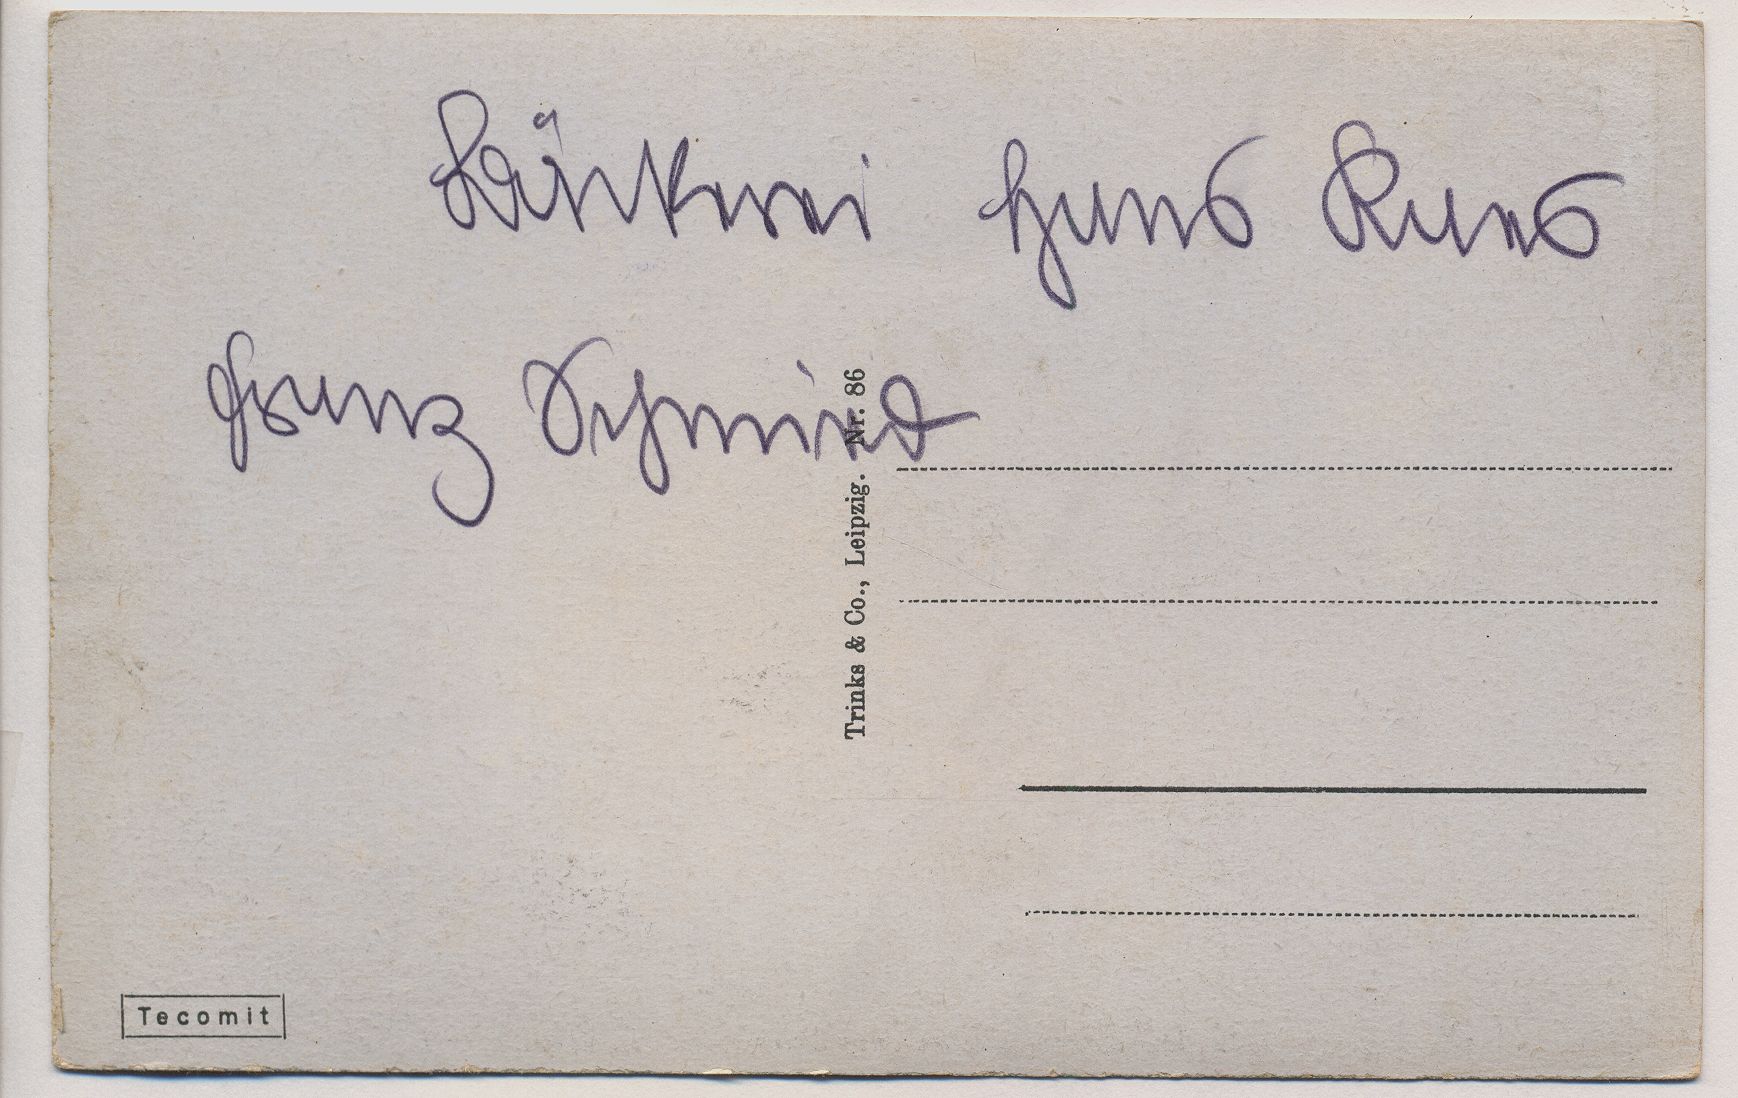 Bäckerei Hans
Franz Schmied
Trinks & Co., Leipzig. Nr. 86
Tecomit